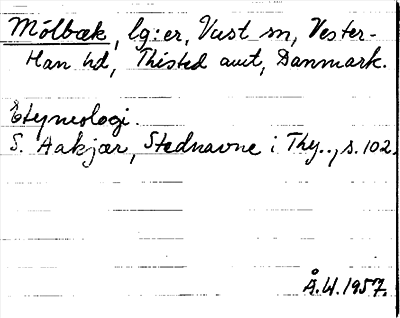 Mölbæk, lg:er, Vust sn, Vester-
Han hd, Thisted amt, Danmark.
Etymologi.
S. Aakjær, Stednavne i Thy.., s. 102.
Å.W. 1957.